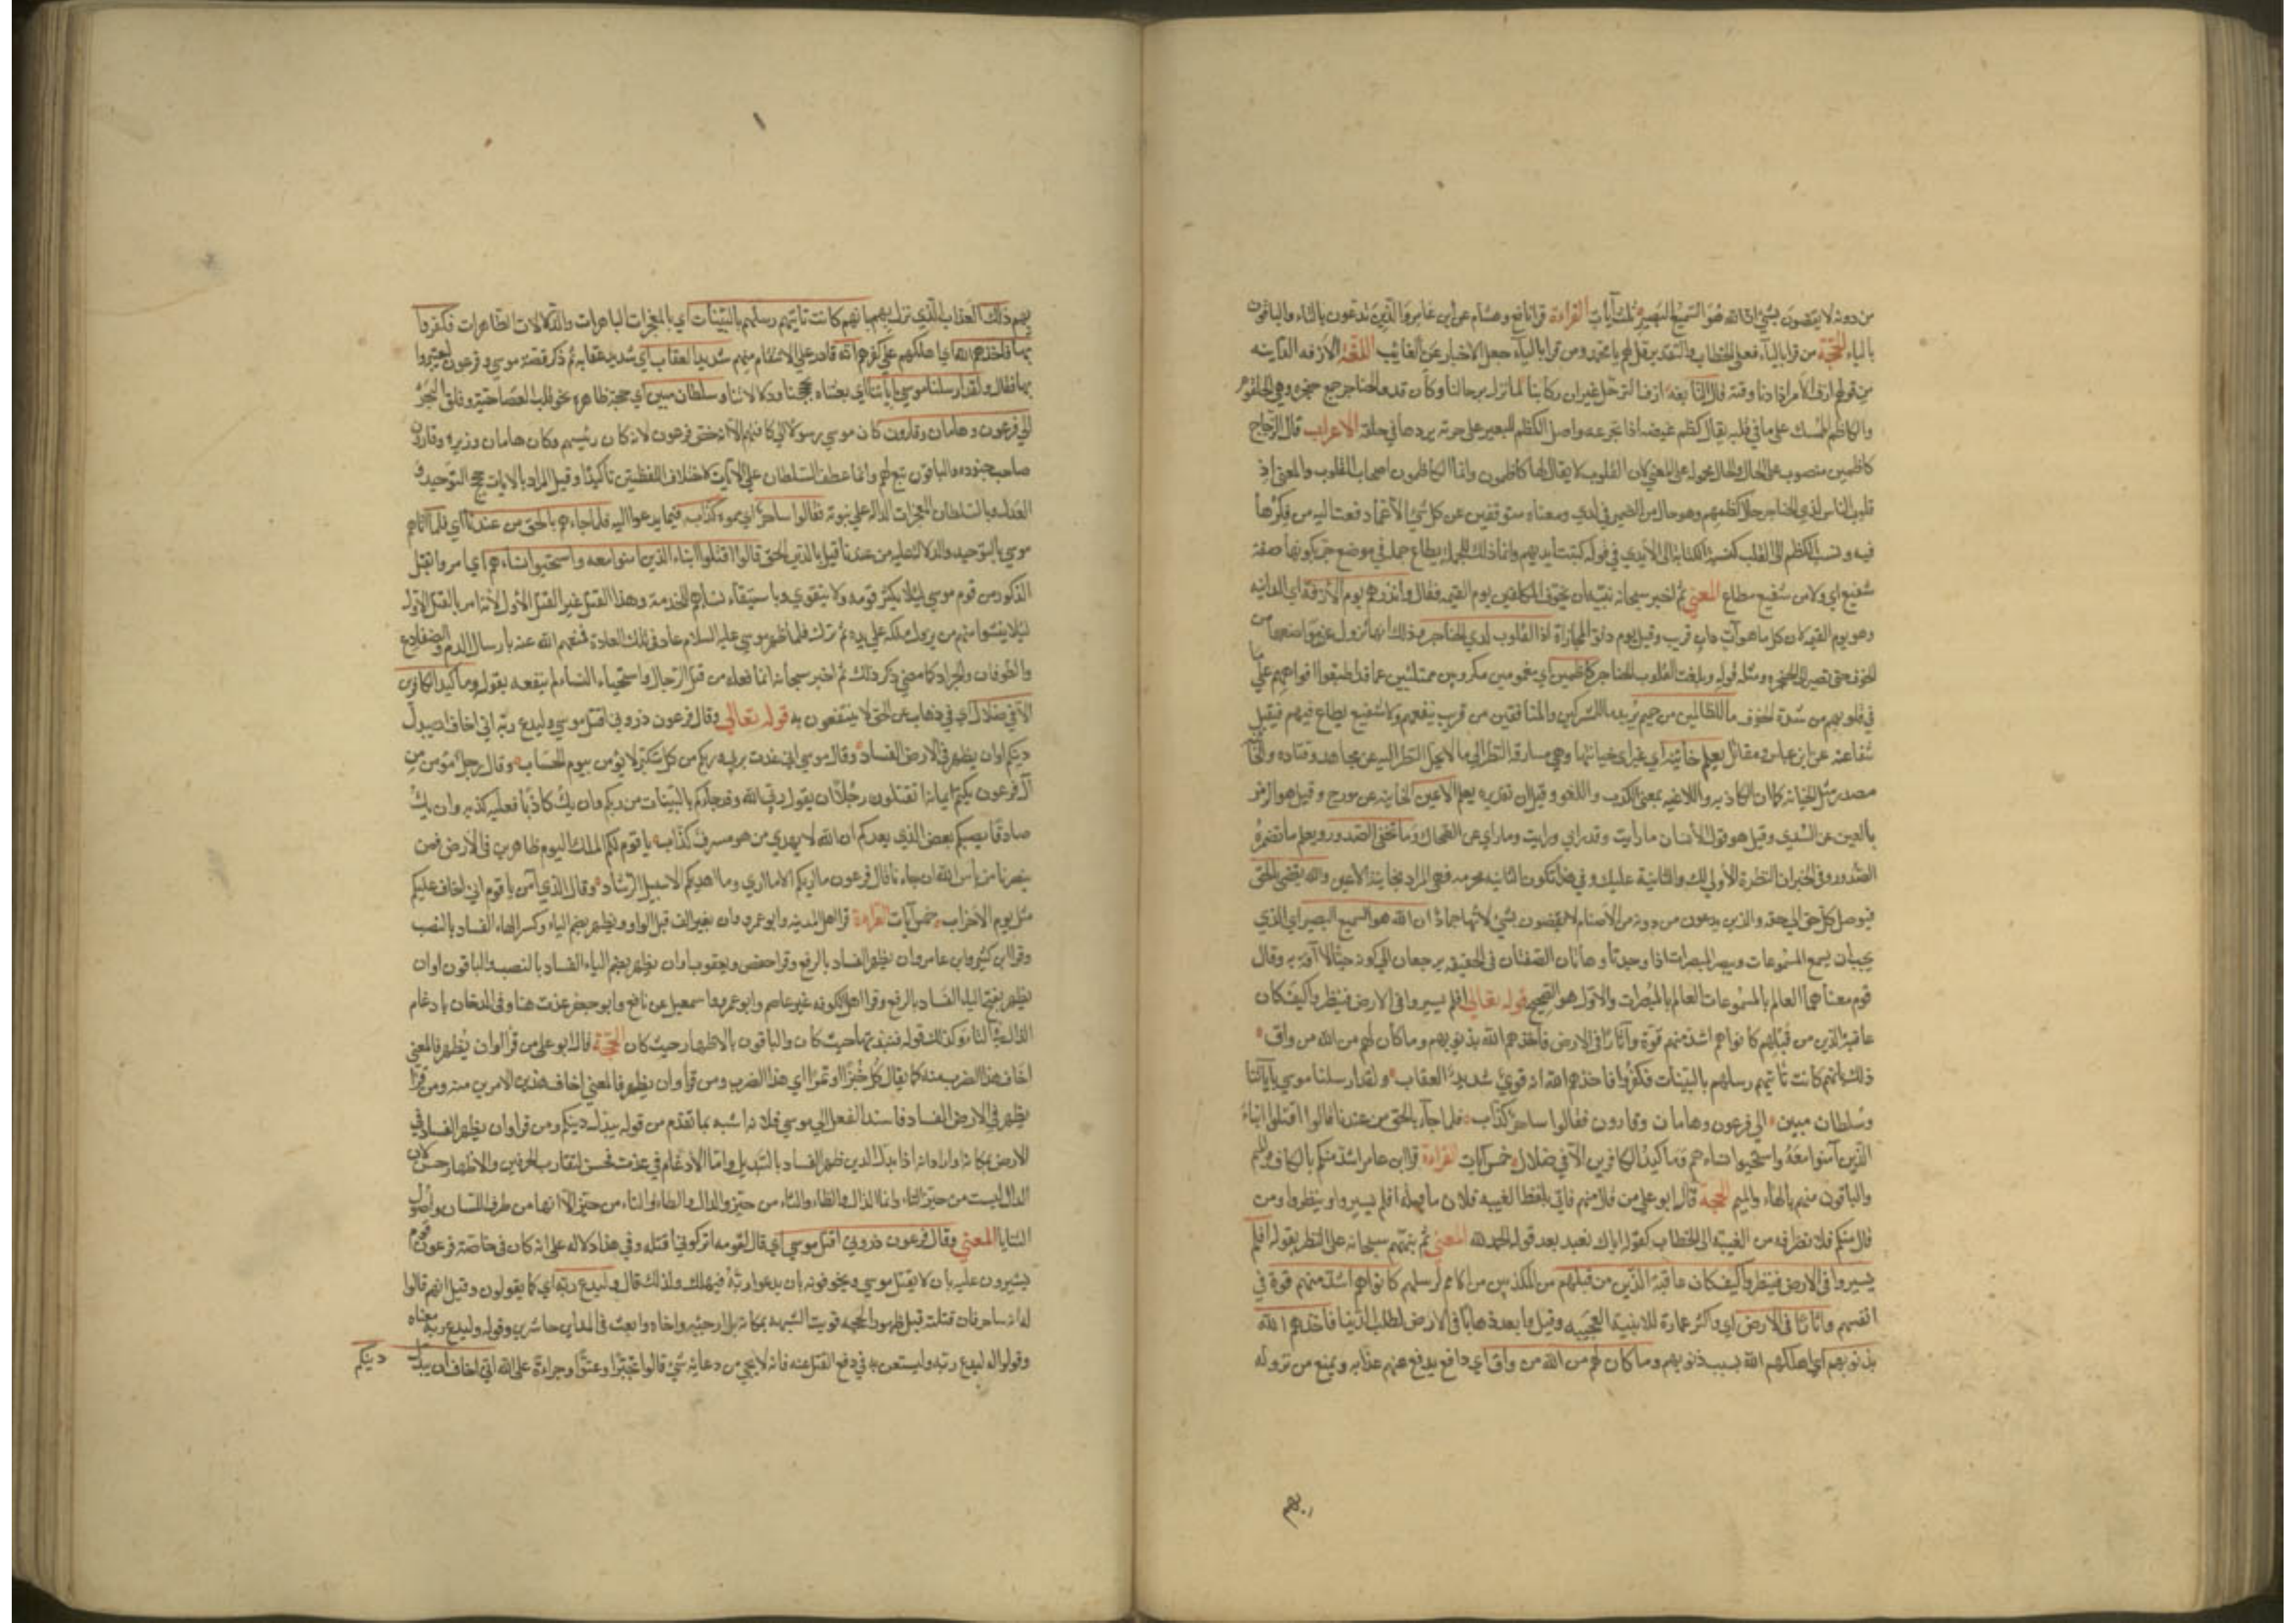 من دونه لا يقضون بشيء ان الله هو السميع البصير ثلث آيات القراءة قرا نافع وهشام عن ابن عامر والذين تدعون بالتاء والباقون
بالياء الحجة من قرا بالتاء فعلى الخطاب والتقدير قل لهم يا محمد ومن قرا بالياء جعل الاخبار عن الغايب اللغة الازفه الدانيه
من قولهم ازف الامر اذا دنا وقته قال النابغه ازف الترحل غير ان ركابنا لما تزل برحالنا وكان قد والحناجر جمع حنجره وهي الحلقوم
والكاظم الممسك على ما في قلبه يقال كظم غيضه اذا تجرعه واصل الكظم للبعير على جرته يردها في حلقه الاعراب قال الزجاج
كاظمين منصوب على الحال والحال محمولة على المعنى لان القلوب لا يقال لها كاظمون وانما الكاظمون اصحاب القلوب والمعنى اذ
قلوب الناس لدي الحناجر حال كظمهم وهو حال من الضمير في لدي ومعناه متوقفين عن كل شيء الا عما دفعت اليه من فكرها
فيه ونسب الكظم الى القلب كنسبة الكتابة الى الايدي في قوله كتبت ايديهم وانما ذلك للجملة يطاع جملة في موضع جر بكونها صفة
شفيع اي ولا من شفيع مطاع المعنى ثم اخبر سبحانه نبيه ان يخوف المكلفين يوم القيمه فقال وانذرهم يوم الازفة اي الدانيه
وهو يوم القيمه لان كل ما هو آت دان قريب وقيل يوم دنو المجازاة اذ القلوب لدي الحناجر وذلك انها تزول عن مواضعها من
الخوف حتى تصير الى الحنجره ومثله قوله وبلغت القلوب الحناجر كاظمين اي مغمومين مكروبين ممتلئين عما قد اطبقوا افواههم على ما
في قلوبهم من شدة الخوف ما للظالمين من حميم يريد ما للمشركين والمنافقين من قريب ينفعهم ولا شفيع يطاع فيهم فيقبل
شفاعته عن ابن عباس ومقاتل يعلم خائنة اي خيانتها وهي مسارقة النظر الى ما لا يحل النظر اليه عن مجاهد وقتاده والخائنة
مصدر مثل الخيانه كما ان الكاذبه واللاغيه بمعنى الكذب واللغو وقيل ان تقديره يعلم الاعين الخاينه عن مورج وقيل هو الرمز
بالعين عن السدي وقيل هو قول الانسان ما رايت وقد راي ورايت وما راي عن الضحاك وما تخفي الصدور ويعلم ما تضمره
الصدور وفي الخبر ان النظرة الاولى لك والثانية عليك وفي هذا تكون الثانيه محرمه فهي المراد بخائنة الاعين والله يقضي بالحق
فيوصل كل حق الى حقه والذين يدعون من دونه من الاصنام لا يقضون بشيء لانها جماد ان الله هو السميع البصير اي الذي
يجب ان يسمع المسموعات ويبصر المبصرات اذا وجدتا وهاتان الصفتان في الحقيقه يرجعان الى كونه حيا لا آفة به وقال
قوم معناهما العالم بالمسموعات العالم بالمبصرات والاول هو الصحيح قوله تعالى افلم يسيروا في الارض فينظروا كيف كان
عاقبة الذين من قبلهم كانوا هم اشد منهم قوة وآثارا في الارض فاخذهم الله بذنوبهم وما كان لهم من الله من واق
ذلك بانهم كانت تاتيهم رسلهم بالبينات فكفروا فاخذهم الله انه قوي شديد العقاب ولقد ارسلنا موسي بآياتنا
وسلطان مبين الى فرعون وهامان وقارون فقالوا ساحر كذاب فلما جاءهم بالحق من عندنا قالوا اقتلوا ابناء
الذين آمنوا معه واستحيوا نساءهم وما كيد الكافرين الا في ضلال خمس آيات القراءة قرا ابن عامر اشد منكم بالكاف والميم
والباقون منهم بالهاء والميم الحجة قال ابو علي من قال منهم فاتي بلفظ الغيبه فلان ما قبله افلم يسيروا وينظروا ومن
قال منكم فلانصرافه من الغيبة الى الخطاب كقوله اياك نعبد بعد قوله الحمد لله المعنى ثم نبههم سبحانه على النظر بقوله افلم
يسيروا في الارض فينظروا كيف كان عاقبة الذين من قبلهم من المكذبين من الامم لرسلهم كانوا هم اشد منهم قوة في
انفسهم واثارا في الارض اي واكثر عمارة للابنية العجيبه وقيل وابعد ذهابا في الارض لطلب الدنيا فاخذهم الله
بذنوبهم اي اهلكهم الله بسبب ذنوبهم وما كان لهم من الله من واق اي دافع يدفع عنهم عذابه ويمنع من نزوله
بهم
بهم ذلك العذاب الذي نزل بهم بانهم كانت تاتيهم رسلهم بالبينات اي بالمعجزات الباهرات والدلالات الظاهرات فكفروا
بها فاخذهم الله اي اهلكهم على كفرهم انه قادر على الانتقام منهم شديد العقاب اي شديد عقابه ثم ذكر قصة موسي وفرعون ليعتبروا
بها فقال ولقد ارسلنا موسي بآياتنا اي بعثناه بحججنا ودلالاتنا وسلطان مبين اي حجة ظاهرة نحو قلب العصا حية وفلق البحر
الى فرعون وهامان وقارون كان موسي رسولا الى كافتهم الا انه خص فرعون لانه كان رئيسهم وكان هامان وزيره وقارون
صاحب جنوده والباقون تبع لهم وانما عطف السلطان على الآيات لاختلاف اللفظين تاكيدا وقيل المراد بالايات حجج التوحيد و
العدل وبالسلطان المعجزات الدالة على نبوته فقالوا ساحر اي مموه كذاب فيما يدعوا اليه فلما جاءهم بالحق من عندنا اي فلما اتاهم
موسي بالتوحيد والدلالات عليه من عندنا قيل بالدين الحق قالوا اقتلوا ابناء الذين امنوا معه واستحيوا نساءهم اي امروا بقتل
الذكور من قوم موسي ليلا يكثر قومه ولا يتقوي وباستبقاء نسائهم للخدمة وهذا القتل غير القتل الاول لانه امر بالقتل الاول
ليلا ينشوا منهم من يزول ملكه على يده ثم ترك فلما ظهر موسى عليه السلام عاد في تلك العادة فمنعهم الله عنه بارسال الدم والضفادع
والطوفان والجراد كما مضي ذكر ذلك ثم اخبر سبحانه انما فعله من قتل الرجال واستحياء النساء لم ينفعه بقوله وما كيد الكافرين
الا في ضلال اي في ذهاب عن الحق لا ينتفعون به قوله تعالى وقال فرعون ذروني اقتل موسي وليدع ربه اني اخاف ان يبدل
دينكم او ان يظهر في الارض الفساد وقال موسي اني عذت بربي وربكم من كل متكبر لا يؤمن بيوم الحساب وقال رجل مؤمن من
آل فرعون يكتم ايمانه اتقتلون رجلا ان يقول ربي الله وقد جاءكم بالبينات من ربكم وان يك كاذبا فعليه كذبه وان يك
صادقا يصبكم بعض الذي يعدكم ان الله لا يهدي من هو مسرف كذاب يا قوم لكم الملك اليوم ظاهرين في الارض فمن
ينصرنا من بأس الله ان جاءنا قال فرعون ما اريكم الا ما اري وما اهديكم الا سبيل الرشاد وقال الذي آمن يا قوم اني اخاف عليكم
مثل يوم الاحزاب خمس آيات القراءة قرا اهل المدينه وابو عمرو وان بغير الف قبل الواو ويظهر بضم الياء وكسر الهاء الفساد بالنصب
وقرا ابن كثير وابن عامر وان يظهر الفساد بالرفع وقرا حفص ويعقوب او ان يظهر بضم الياء الفساد بالنصب والباقون او ان
يظهر بفتح الياء الفساد بالرفع وقرا اهل الكوفه غير عاصم وابو عمرو واسمعيل عن نافع وابو جعفر عذت هنا وفي الدخان بادغام
الذال في التاء وكذلك قوله فنبذتها حيث كان والباقون بالاظهار حيث كان الحجة قال ابو علي من قرا او ان يظهر فالمعني
اخاف هذا الضرب منه كما يقال كل خبزا او تمرا اي هذا الضرب ومن قرا وان يظهر فالمعني اخاف هذين الامرين منه ومن قرا
يظهر في الارض الفساد فاسند الفعل الى موسي فلانه اشبه بما تقدم من قوله يبدل دينكم ومن قرا وان يظهر الفساد في
الارض فكانه اراد انه اذا بدل الدين ظهر الفساد بالتبديل واما الادغام في عذت فحسن لتقارب الحرفين والاظهار حسن لان
الذال ليست من حيز التاء وانما الذال والظاء والثاء من حيز والدال والطاء والتاء من حيز الا انها من طرف اللسان واصول
الثنايا المعني وقال فرعون ذروني اقتل موسي اي قال لقومه اتركوني اقتله وفي هذا دلاله على انه كان في خاصة فرعون قوم
يشيرون عليه بان لا يقتل موسي ويخوفونه بان يدعوا ربه فيهلك ولذلك قال وليدع ربه اي كما يقولون وقيل انهم قالوا
له انه ساحر فان قتلته قبل ظهور الحجه قويت الشبهه بمكانه بل ارجئه واخاه وابعث في المداين حاشرين وقوله وليدع ربه معناه
وقولوا له ليدع ربه وليستعن به في دفع القتل عنه فانه لا يجي من دعائه شي قالوا تجبرا وعتوا وجراءة على الله اني اخاف ان يبدل دينكم